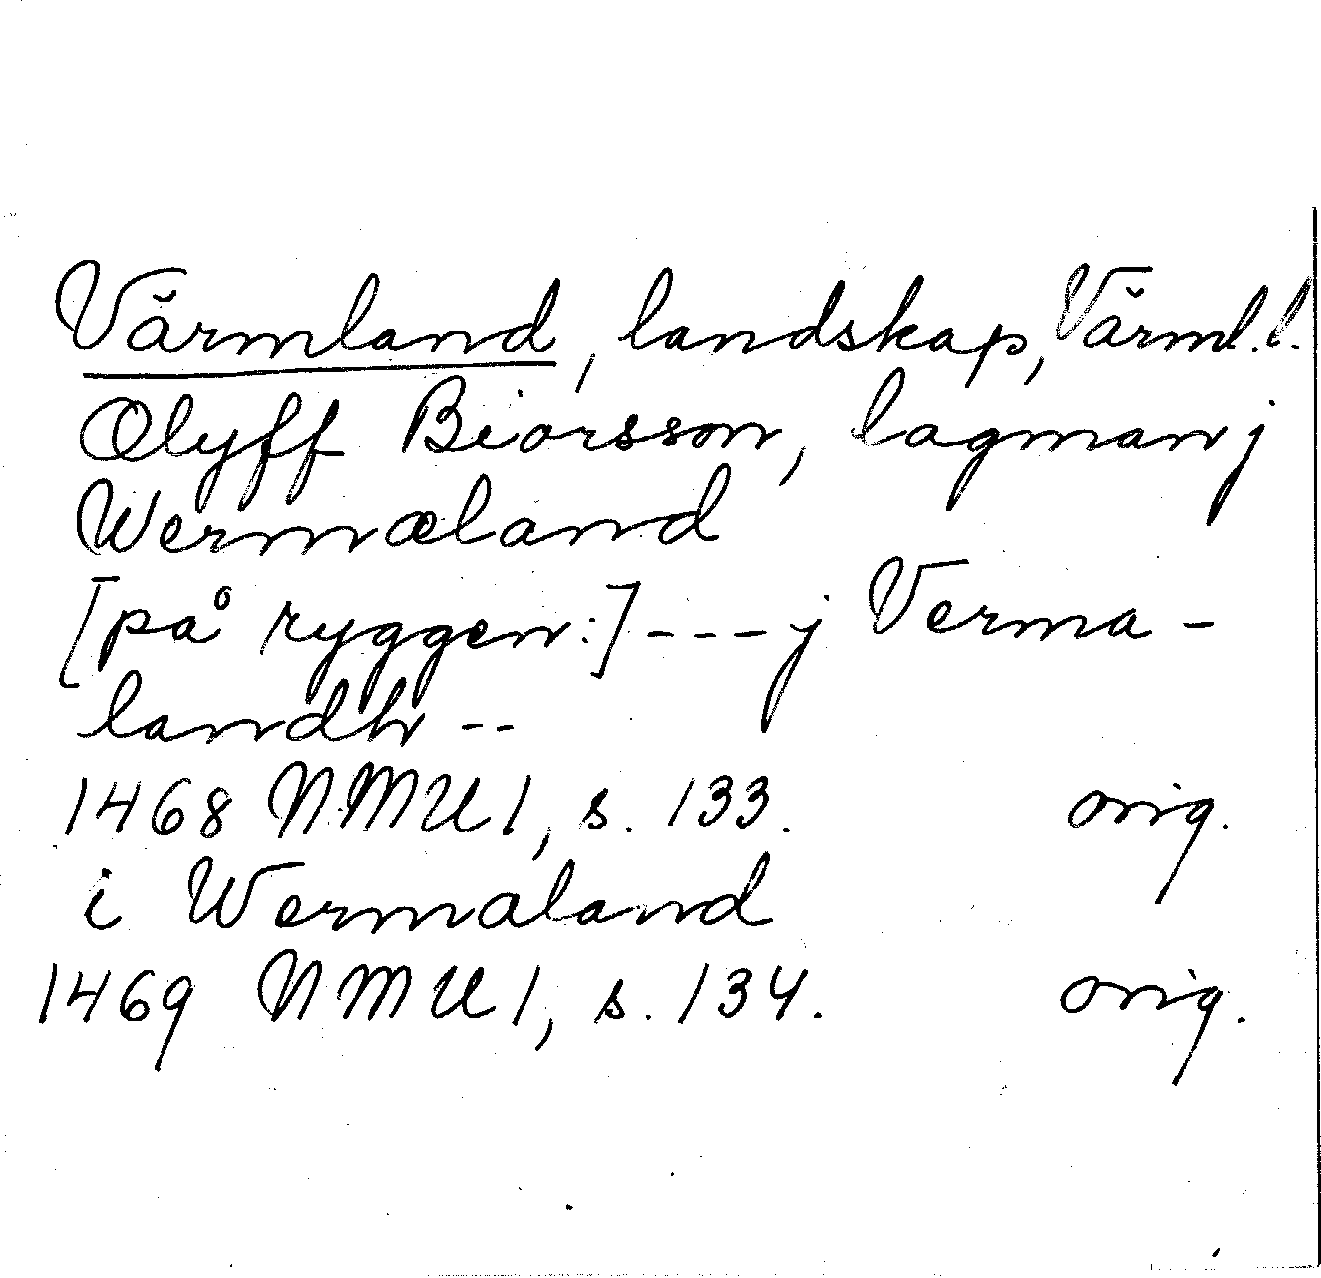 Värmland, landskap, Värml. l.
Olyff Biorsson, lagman j
Wermæland
[på ryggen:] --- j Verma-
landh --
1468 NMU 1, s. 133. orig.
i Wermaland
1469 NMU 1, s. 134. orig.